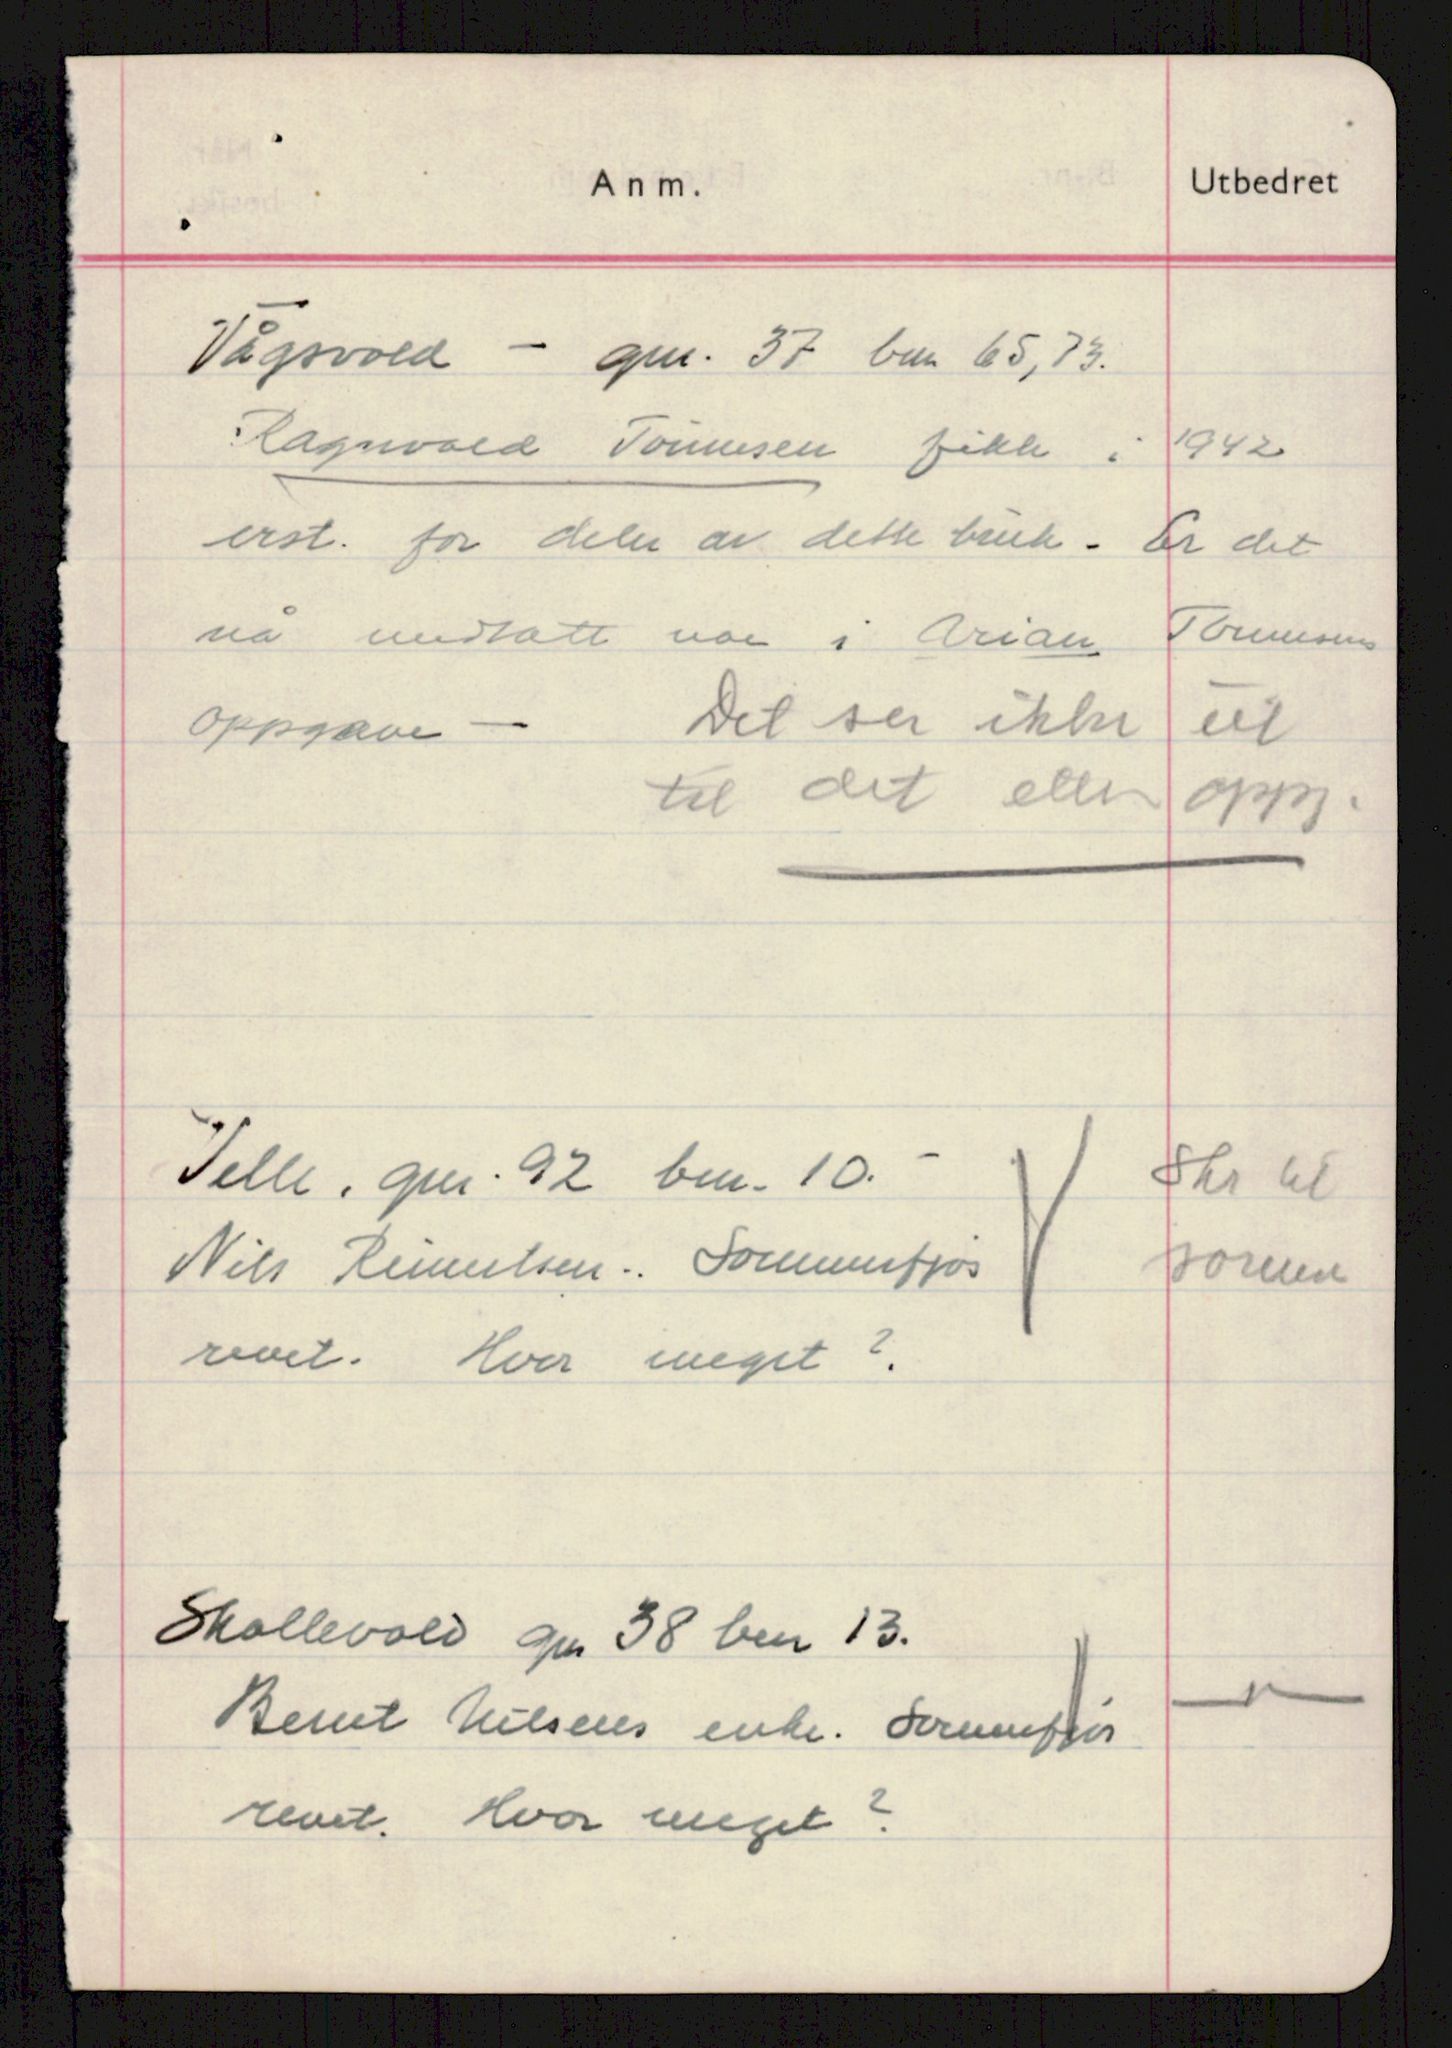 Anm. Utbedret
Vågsvold - gnr. 37 bnr 65, 73.
Ragnvald Tønnesen fikk i 1942
erst. for deler av dette bruk - Er det
nå medtatt noe i Arian Tønnesens
oppgave -
Det ser ikke ut
til det etter oppg.
Velle. gnr. 92 bnr. 10. -
Nils Reinertsen.. Sommerfjøs
revet. Hvor meget?
Skr til
Skollevold gnr 38 bnr 13.
Bernt Nilsens enke. Sommerfjøs
revet. Hvor meget?